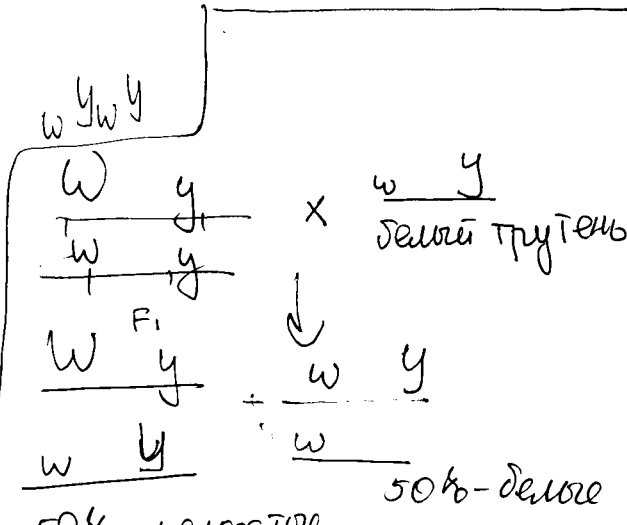 w y w y
W y × w y
w y белый трутень
F₁
W y : w y
w y w
50% - белые
50%